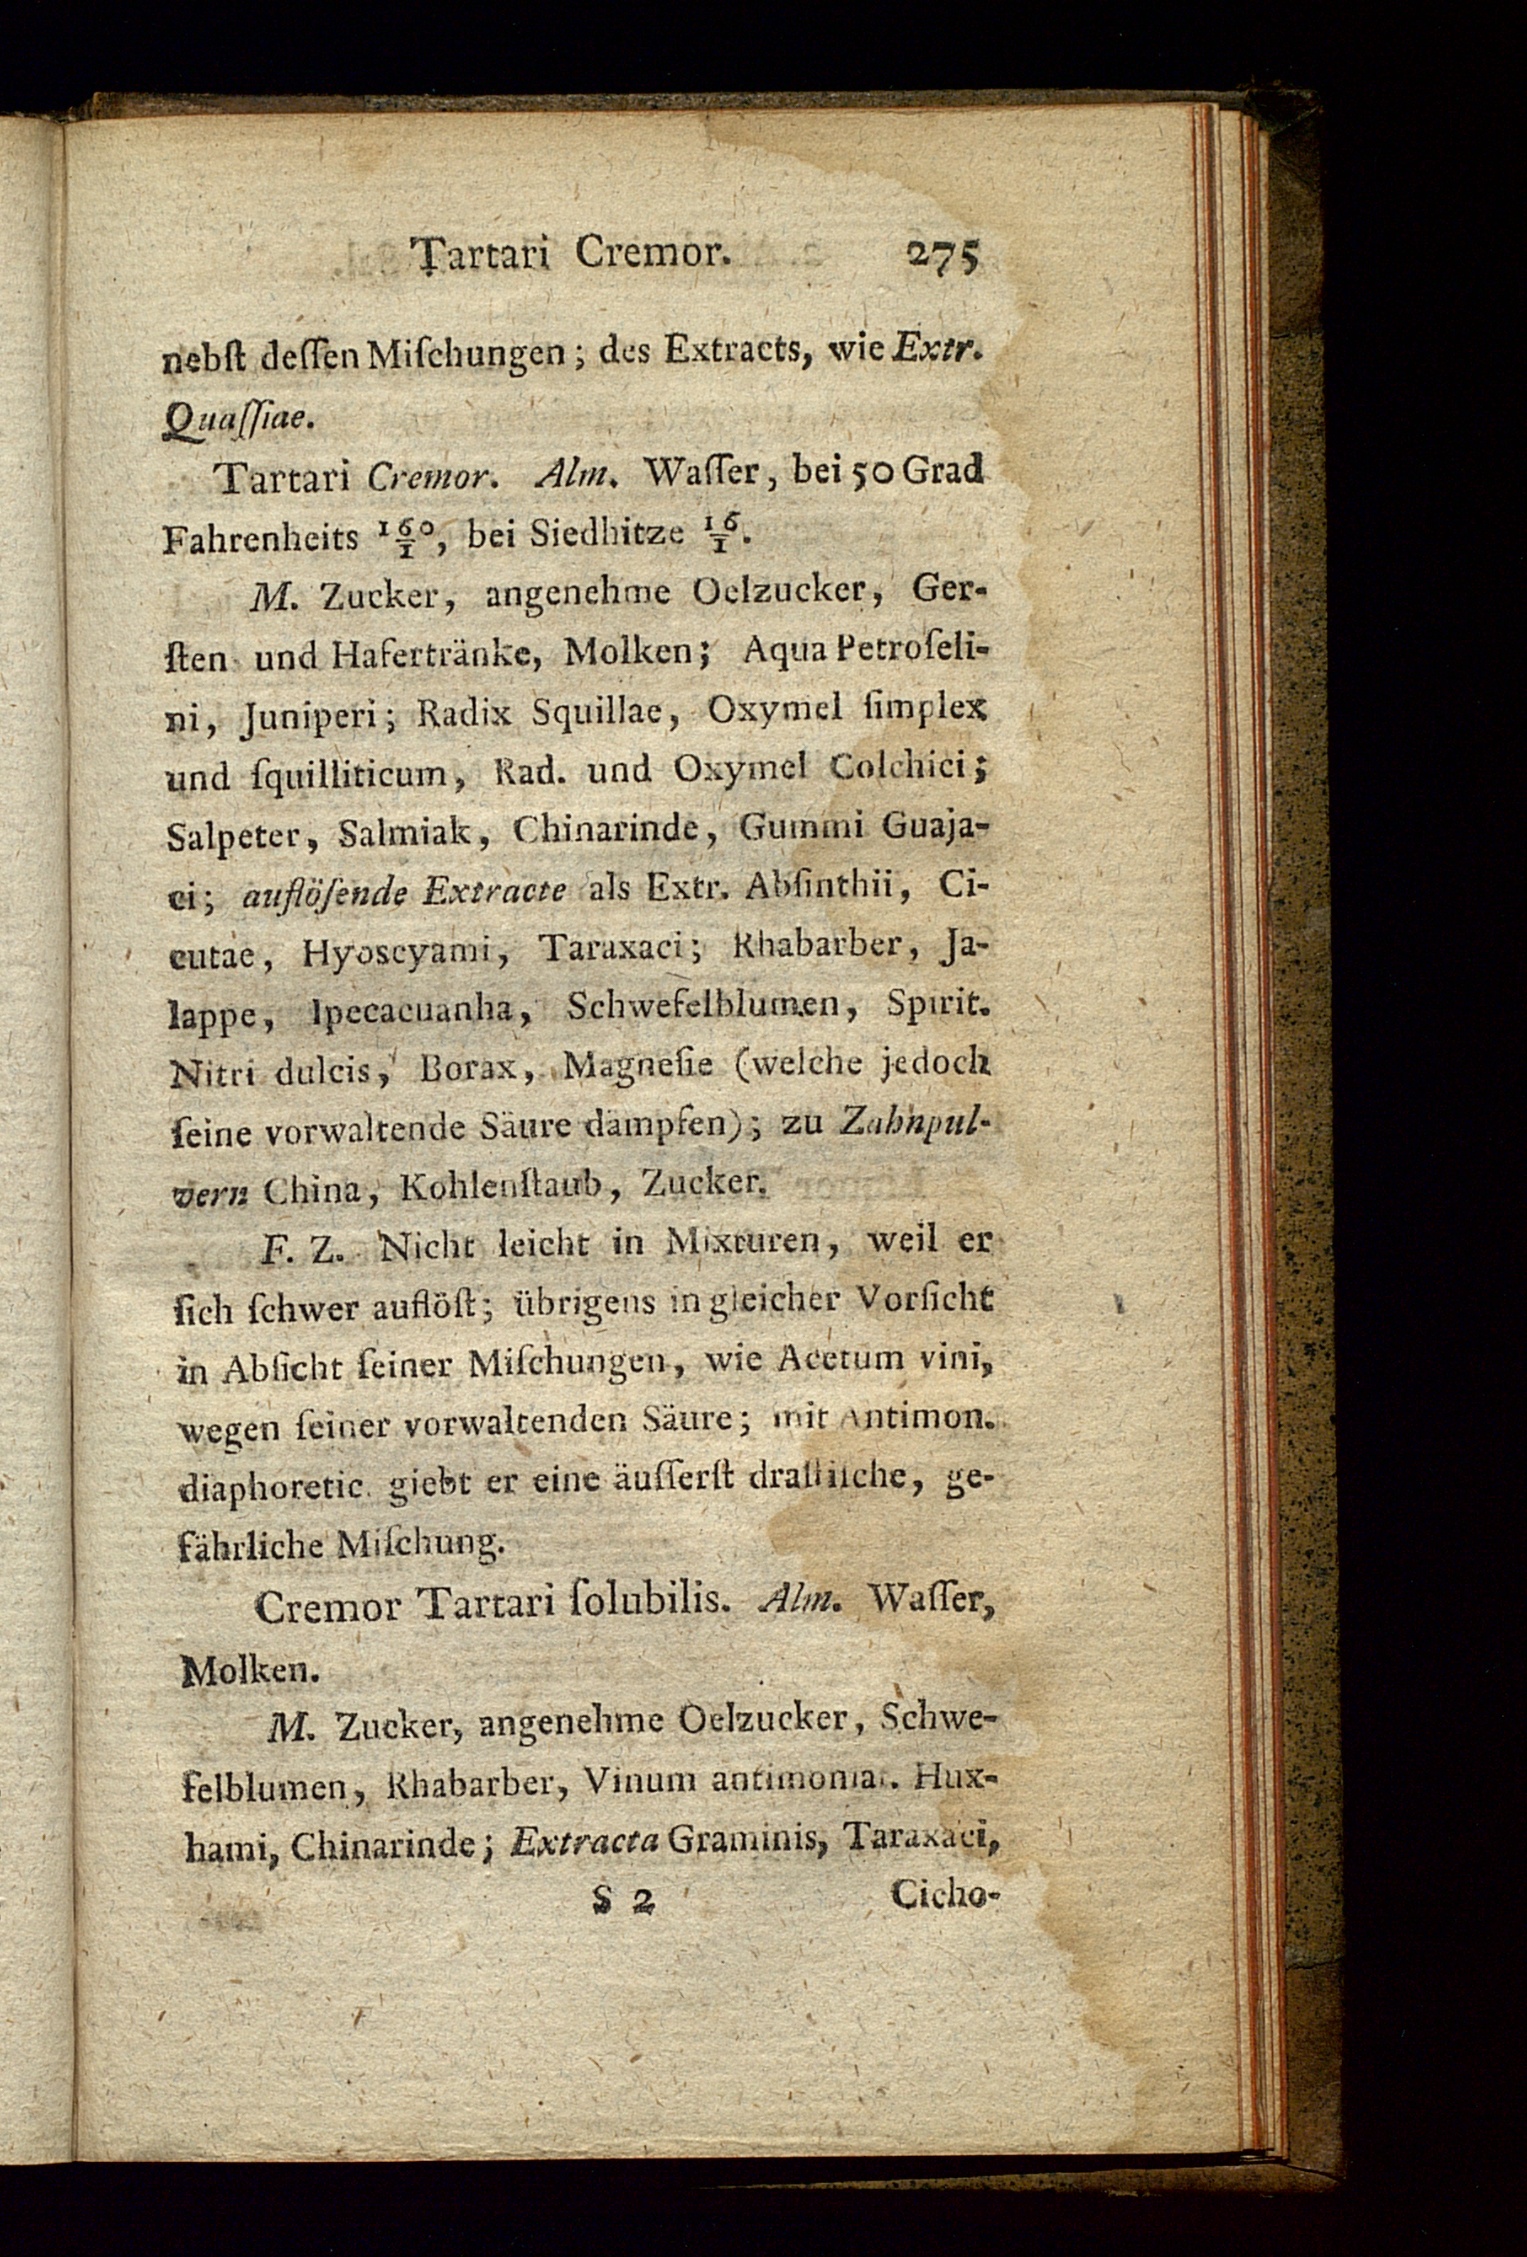 Tartari Cremor. 275
nebſt deſſen Miſchungen; des Extracts, wie Extr.
Quaſſiae.
Tartari Cremor. Alm. Waſſer, bei 50 Grad
Fahrenheits 160/1, bei Siedhitze 16/1.
M. Zucker, angenehme Oelzucker, Ger-
ſten und Hafertränke, Molken; Aqua Petroſeli-
ni, Juniperi; Radix Squillae, Oxymel ſimplex
und ſquilliticum, Rad. und Oxymel Colchici;
Salpeter, Salmiak, Chinarinde, Gummi Guaja-
ci; auflöſende Extracte als Extr. Abſinthii, Ci-
cutae, Hyoscyami, Taraxaci; Rhabarber, Ja-
lappe, Ipecacuanha, Schwefelblumen, Spirit.
Nitri dulcis, Borax, Magneſie (welche jedoch
ſeine vorwaltende Säure dämpfen); zu Zahnpul-
vern China, Kohlenſtaub, Zucker.
F. Z. Nicht leicht in Mixturen, weil er
ſich ſchwer auflöſt; übrigens in gleicher Vorſicht
in Abſicht ſeiner Miſchungen, wie Acetum vini,
wegen ſeiner vorwaltenden Säure; mit Antimon.
diaphoretic. giebt er eine äuſſerſt draſtiſche, ge-
fährliche Miſchung.
Cremor Tartari ſolubilis. Alm. Waſſer,
Molken.
M. Zucker, angenehme Oelzucker, Schwe-
felblumen, Rhabarber, Vinum antimonial. Hux-
hami, Chinarinde; Extracta Graminis, Taraxaci,
S 2 Cicho-